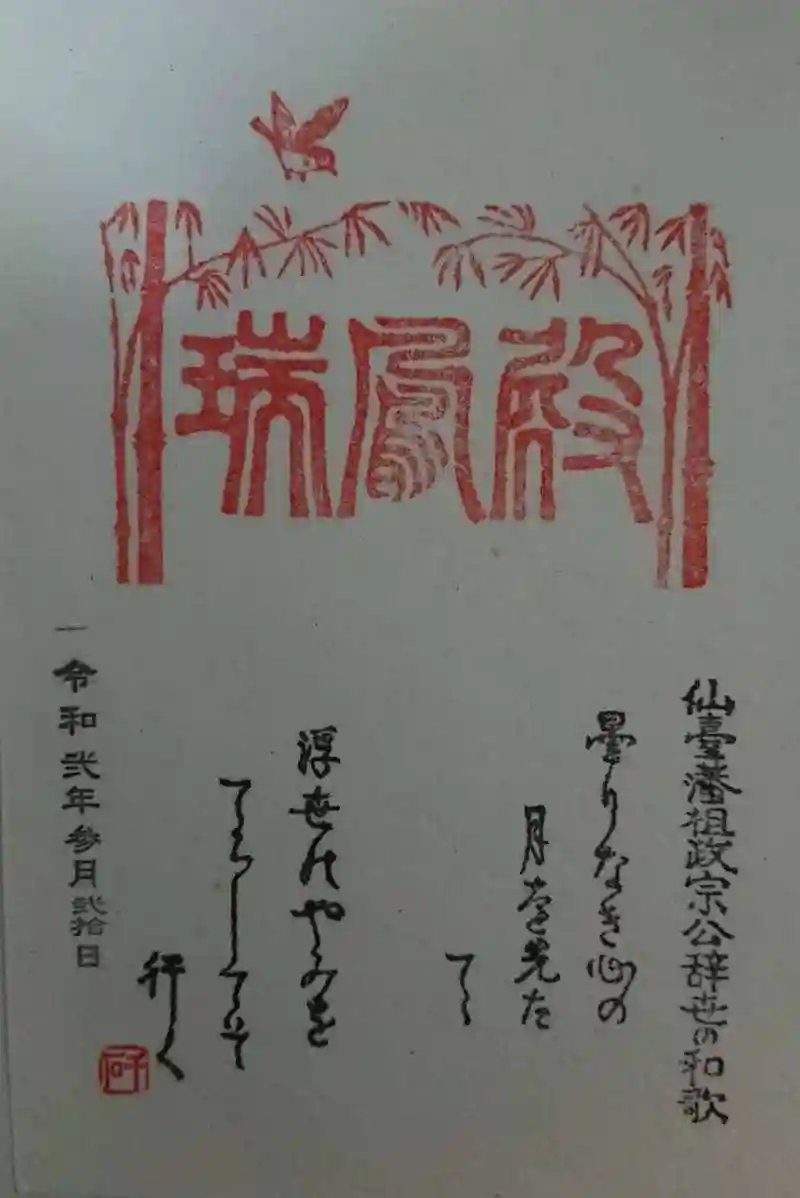 瑞鳳殿
仙臺藩祖政宗公辞世の和歌
曇りなき心の
月を先た
てゝ
浮世のやみを
てらしてそ
行く
令和弐年参月弐拾日